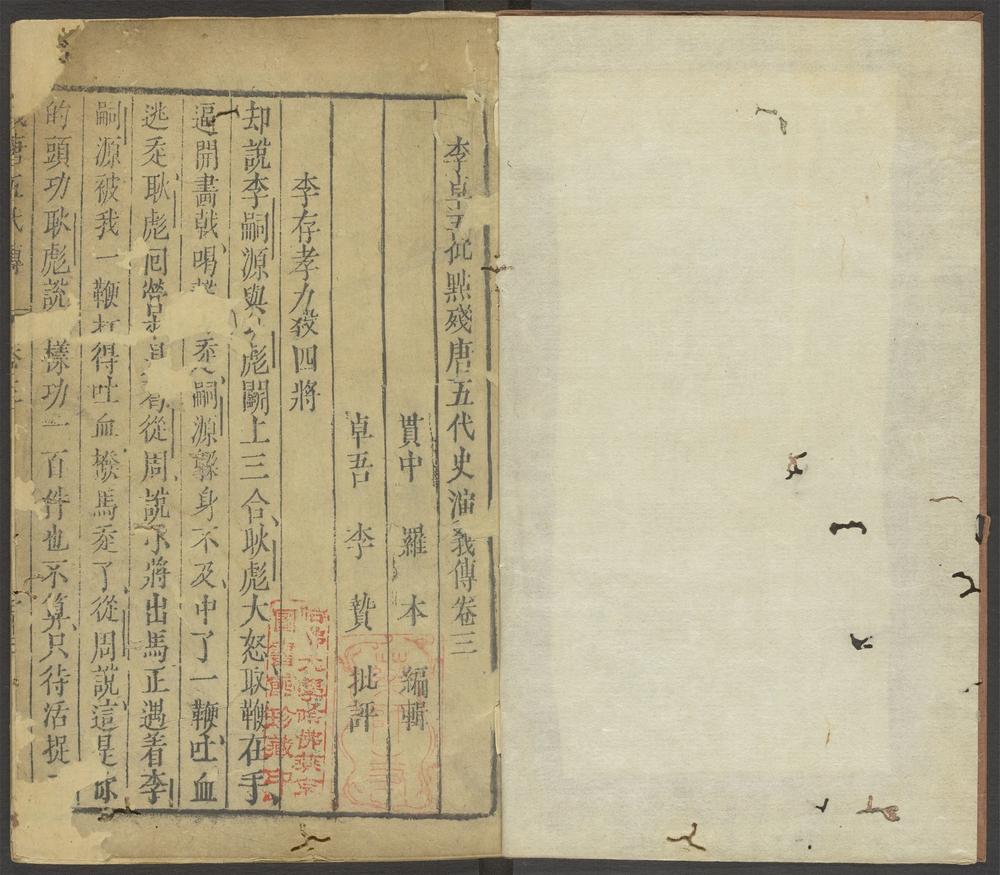 李卓吾批點殘唐五代史演義傳卷三
貫中 羅 本 編輯
卓吾 李 贄 批評
李存孝力殺四將
却說李嗣源與 彪鬬上三合耿彪大怒取鞭在手
逼開畵戟喝 𠫐嗣源躱身不及中了一鞭吐血
逃𠫐耿彪囘營 從周說小將出馬正遇着李
嗣源被我一鞭打得吐血撥馬𠫐了從周說這是你
的頭功耿彪說 樣功一百件也不算只待活捉
唐五代傳
哈佛大學哈佛燕京
圖書館珍藏印